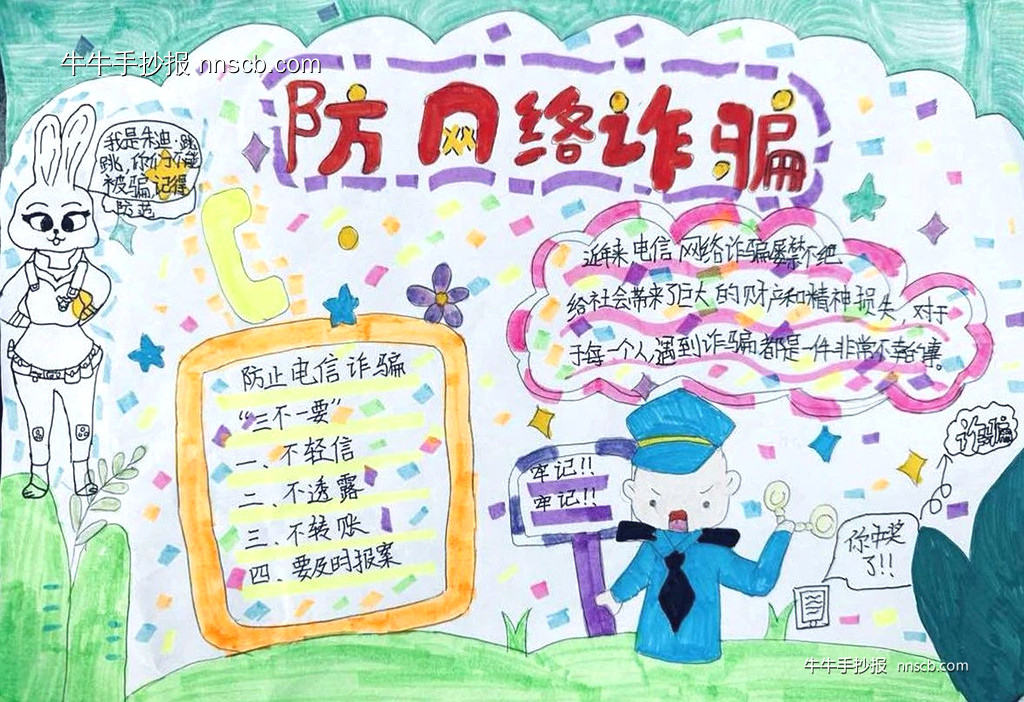 牛牛手抄报 nnscb.com
防网络诈骗
我是朱迪·跳
跳,你们不能
被骗,记得
防范
近年来电信网络诈骗屡禁不绝
给社会带来了巨大的财产和精神损失,对于
于每一个人,遇到诈骗都是一件非常不幸的事。
防止电信诈骗
“三不一要”
一、不轻信
二、不透露
三、不转账
四、要及时报案
牢记!!
牢记!!
诈骗
你中奖
了!!
牛牛手抄报 nnscb.com